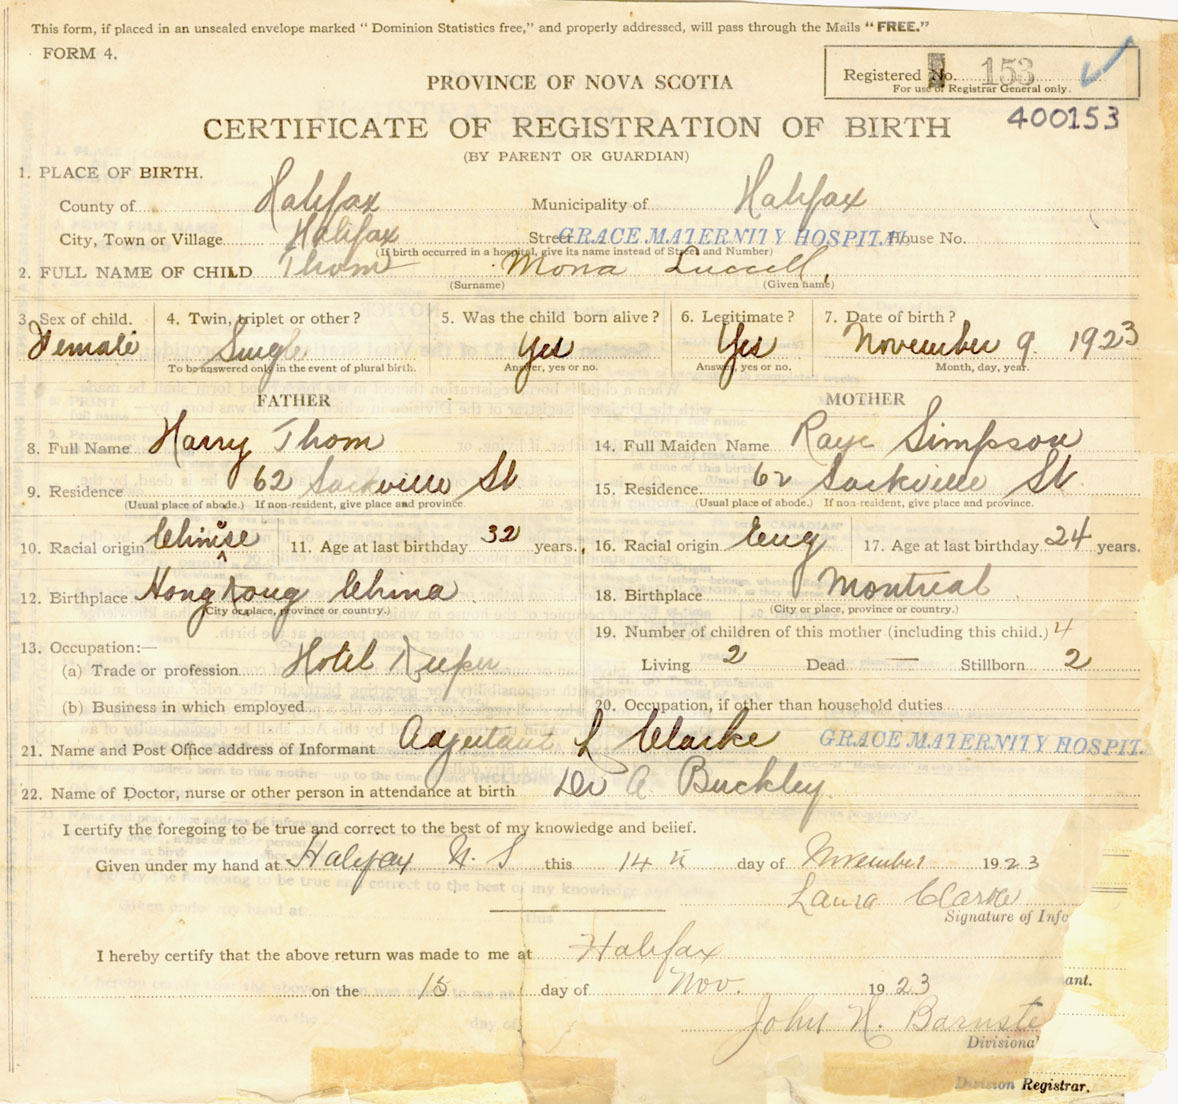 This form, if placed in an unsealed envelope marked "Dominion Statistics free," and properly addressed, will pass through the Mails "FREE."
FORM 4.
Registered No. 153
For use of Registrar General only.
PROVINCE OF NOVA SCOTIA
400153
CERTIFICATE OF REGISTRATION OF BIRTH
(BY PARENT OR GUARDIAN)
1. PLACE OF BIRTH.
County of Halifax Municipality of Halifax
City, Town or Village Halifax Street GRACE MATERNITY HOSPITAL House No.
(If birth occurred in a hospital, give its name instead of Street and Number)
2. FULL NAME OF CHILD Thom Mona
(Surname) (Given name)
3. Sex of child. 4. Twin, triplet or other? 5. Was the child born alive? 6. Legitimate? 7. Date of birth?
Female Single Yes Yes November 9 1923
To be answered only in the event of plural birth. Answer, yes or no. Answer, yes or no. Month, day, year.
FATHER MOTHER
8. Full Name Harry Thom 14. Full Maiden Name Raye Simpson
9. Residence 62 Sackville St 15. Residence. 62 Sackville St
(Usual place of abode.) If non-resident, give place and province. (Usual place of abode.) If non-resident, give place and province.
10. Racial origin Chinese 11. Age at last birthday 32 years. 16. Racial origin Eng 17. Age at last birthday 24 years.
12. Birthplace Hong Kong China 18. Birthplace Montreal
(City or place, province or country.) (City or place, province or country.)
19. Number of children of this mother (including this child.) 4
13. Occupation:—
(a) Trade or profession Hotel Keeper Living 2 Dead — Stillborn 2
(b) Business in which employed 20. Occupation, if other than household duties
21. Name and Post Office address of Informant Adjutant L Clarke GRACE MATERNITY HOSPIT
22. Name of Doctor, nurse or other person in attendance at birth Dr A Buckley
I certify the foregoing to be true and correct to the best of my knowledge and belief.
Given under my hand at Halifax N. S this 14 day of November 1923
Laura Clarke
Signature of Info
I hereby certify that the above return was made to me at Halifax
on the 15 day of Nov. 1923
ant.
John N. Barnste
Divisional
Division Registrar.